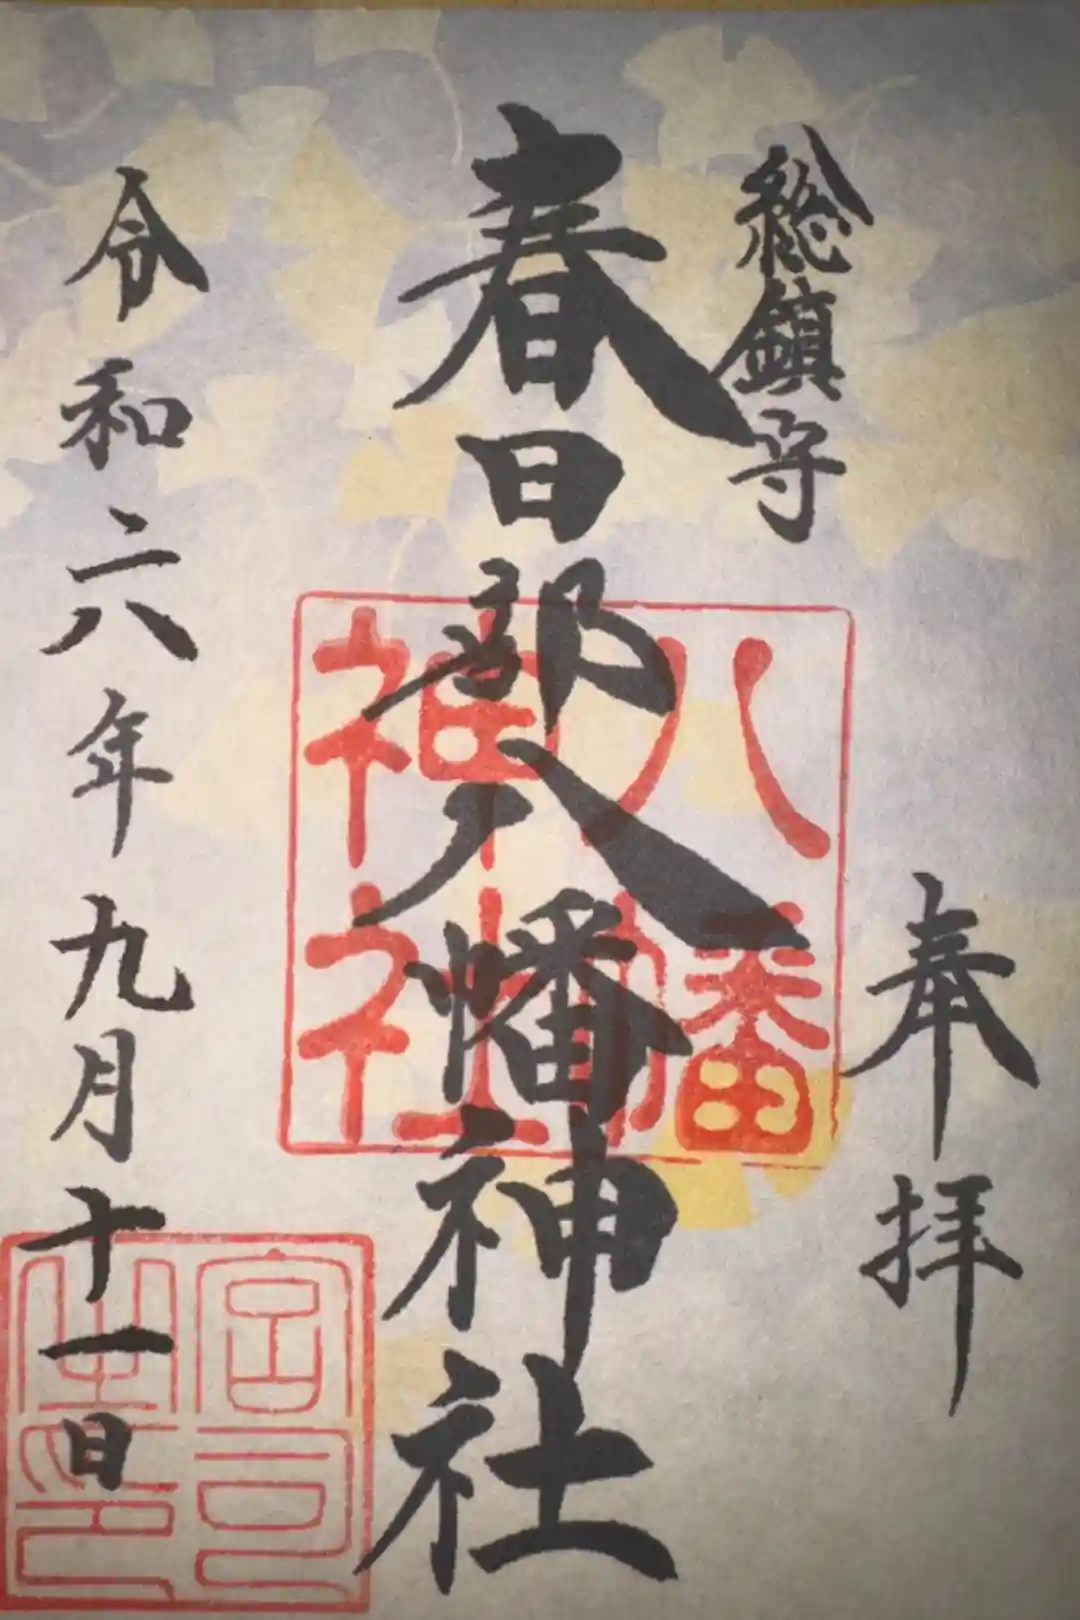 奉拝
総鎮守
春日部八幡神社
八幡
神社
令和六年九月十一日
宮司
之印